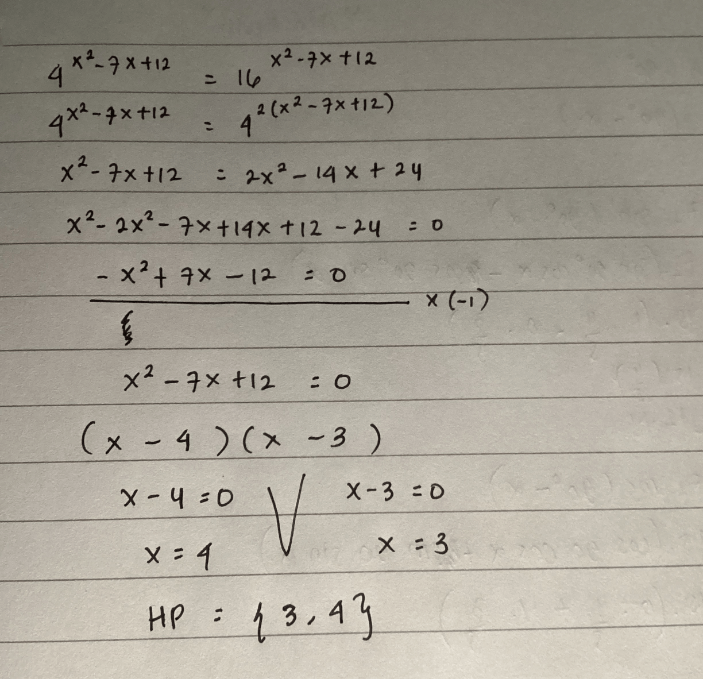 4^(x²-7x+12) = 16^(x²-7x+12)
4^(x²-7x+12) = 4^(2(x²-7x+12))
x²-7x+12 = 2x²-14x+24
x²-2x²-7x+14x+12-24 = 0
-x²+7x-12 = 0
x (-1)
x²-7x+12 = 0
(x-4)(x-3)
x-4=0 V x-3=0
x=4 x=3
HP = {3,4}